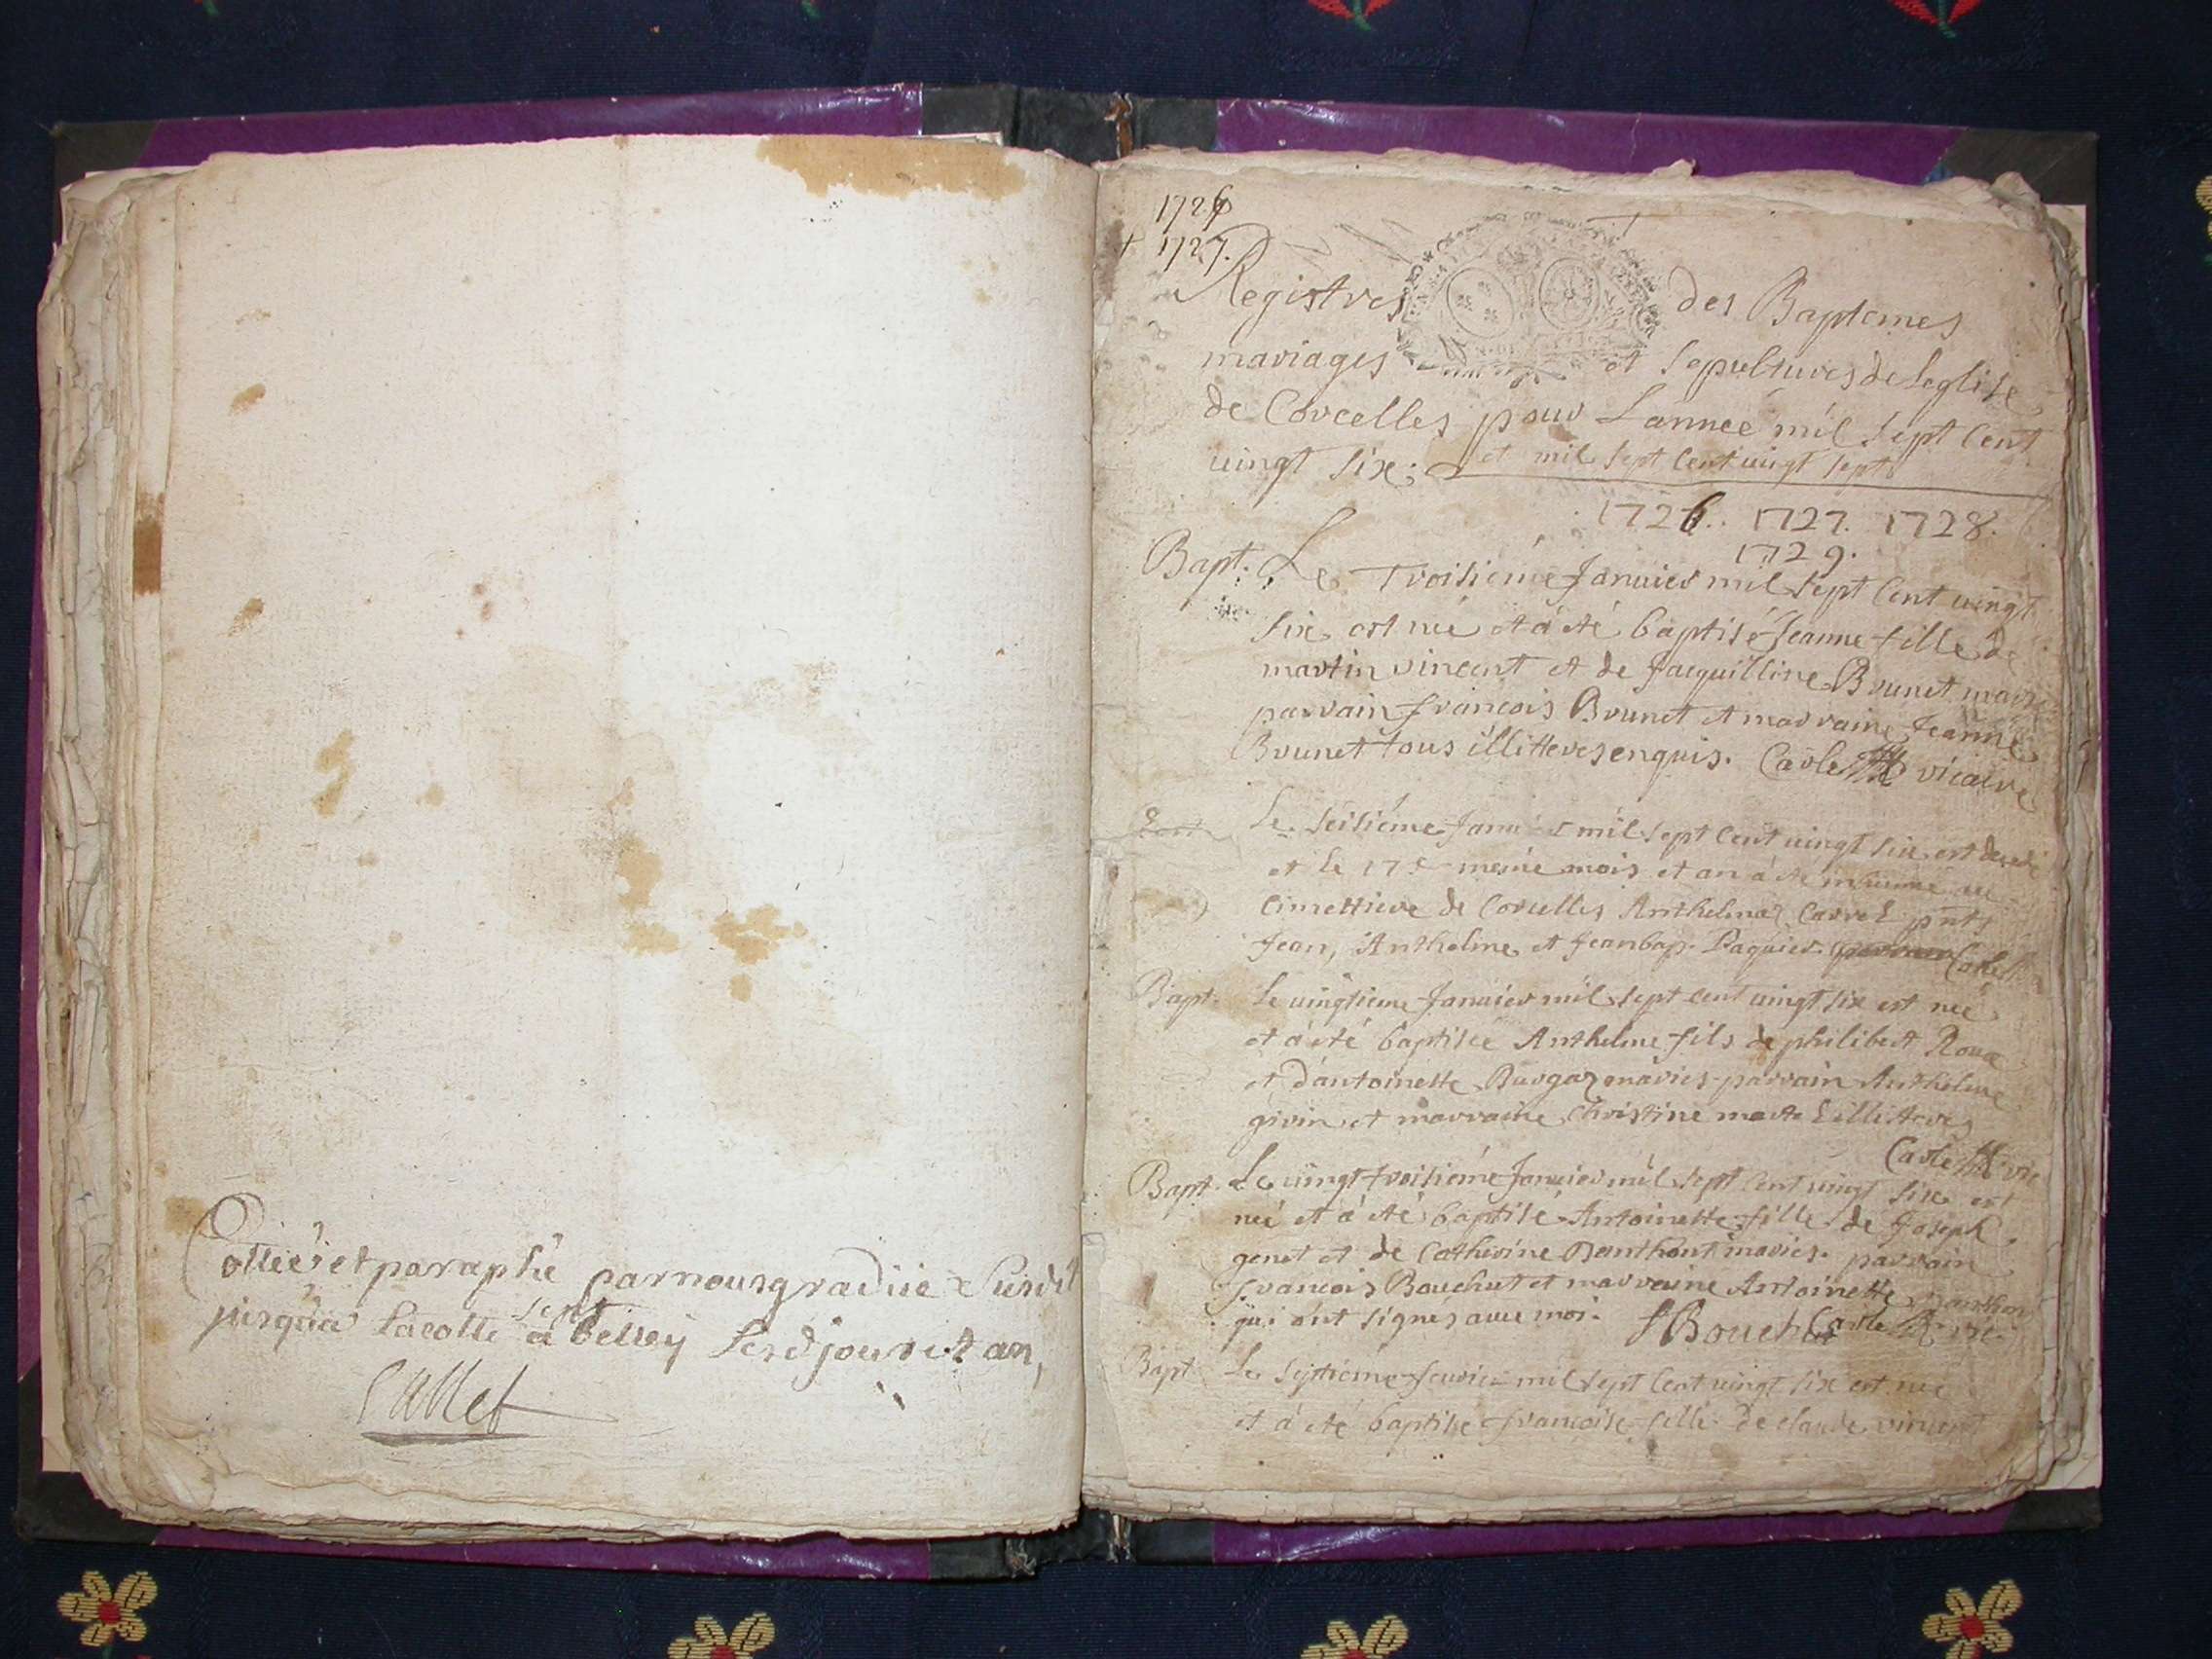 Cottée et paraphé par nous gradué susdit
jusqu'a la cotte sept à belley lesd jour et an,
1726
+ 1727.
Registres des Baptemes
mariages et sepultures de Leglise
de Corcelles pour Lannée mil sept cent
uingt six; et mil sept cent uingt sept
1726. 1727. 1728.
1729.
Bapt. Le Troisiéme Januier mil sept cent uingt
six est neé et á eté baptisé Jeanne fille de
martin vincent et de Jacquilline Brunet
parrain francois Brunet et marraine Jeanne
Brunet tous illitteres enquis. Carle vicaire
Le seisiéme Januier mil sept cent uingt six est decedé
et le 17e meme mois et an á eté inhumé au
cimettiere de Corcelles Anthelme Carrel pnts
Jean, Anthelme et Jeanbap. Paquier Carle
Bapt. Le uingtieme Januier mil sept cent uingt six est neé
et á eté baptisée Anthelme fils de philibert Roux
et d'antoinette Burgaz mariés parrain Anthelme
girin et marraine Christine illitteres
Carle vic
Bapt. Le uingt troisiéme Januier mil sept cent uingt six est
neé et á eté baptisé Antoinette fille de Joseph
genet et de Catherine Banthout mariés. parrain
francois Bouchut et marraine Antoinette
qui ont signes auec moi. f Bouchut Carle vic.
Bapt. Le septiéme feurier mil sept cent uingt six est neé
et á eté baptisé francoise fille de claude vincent